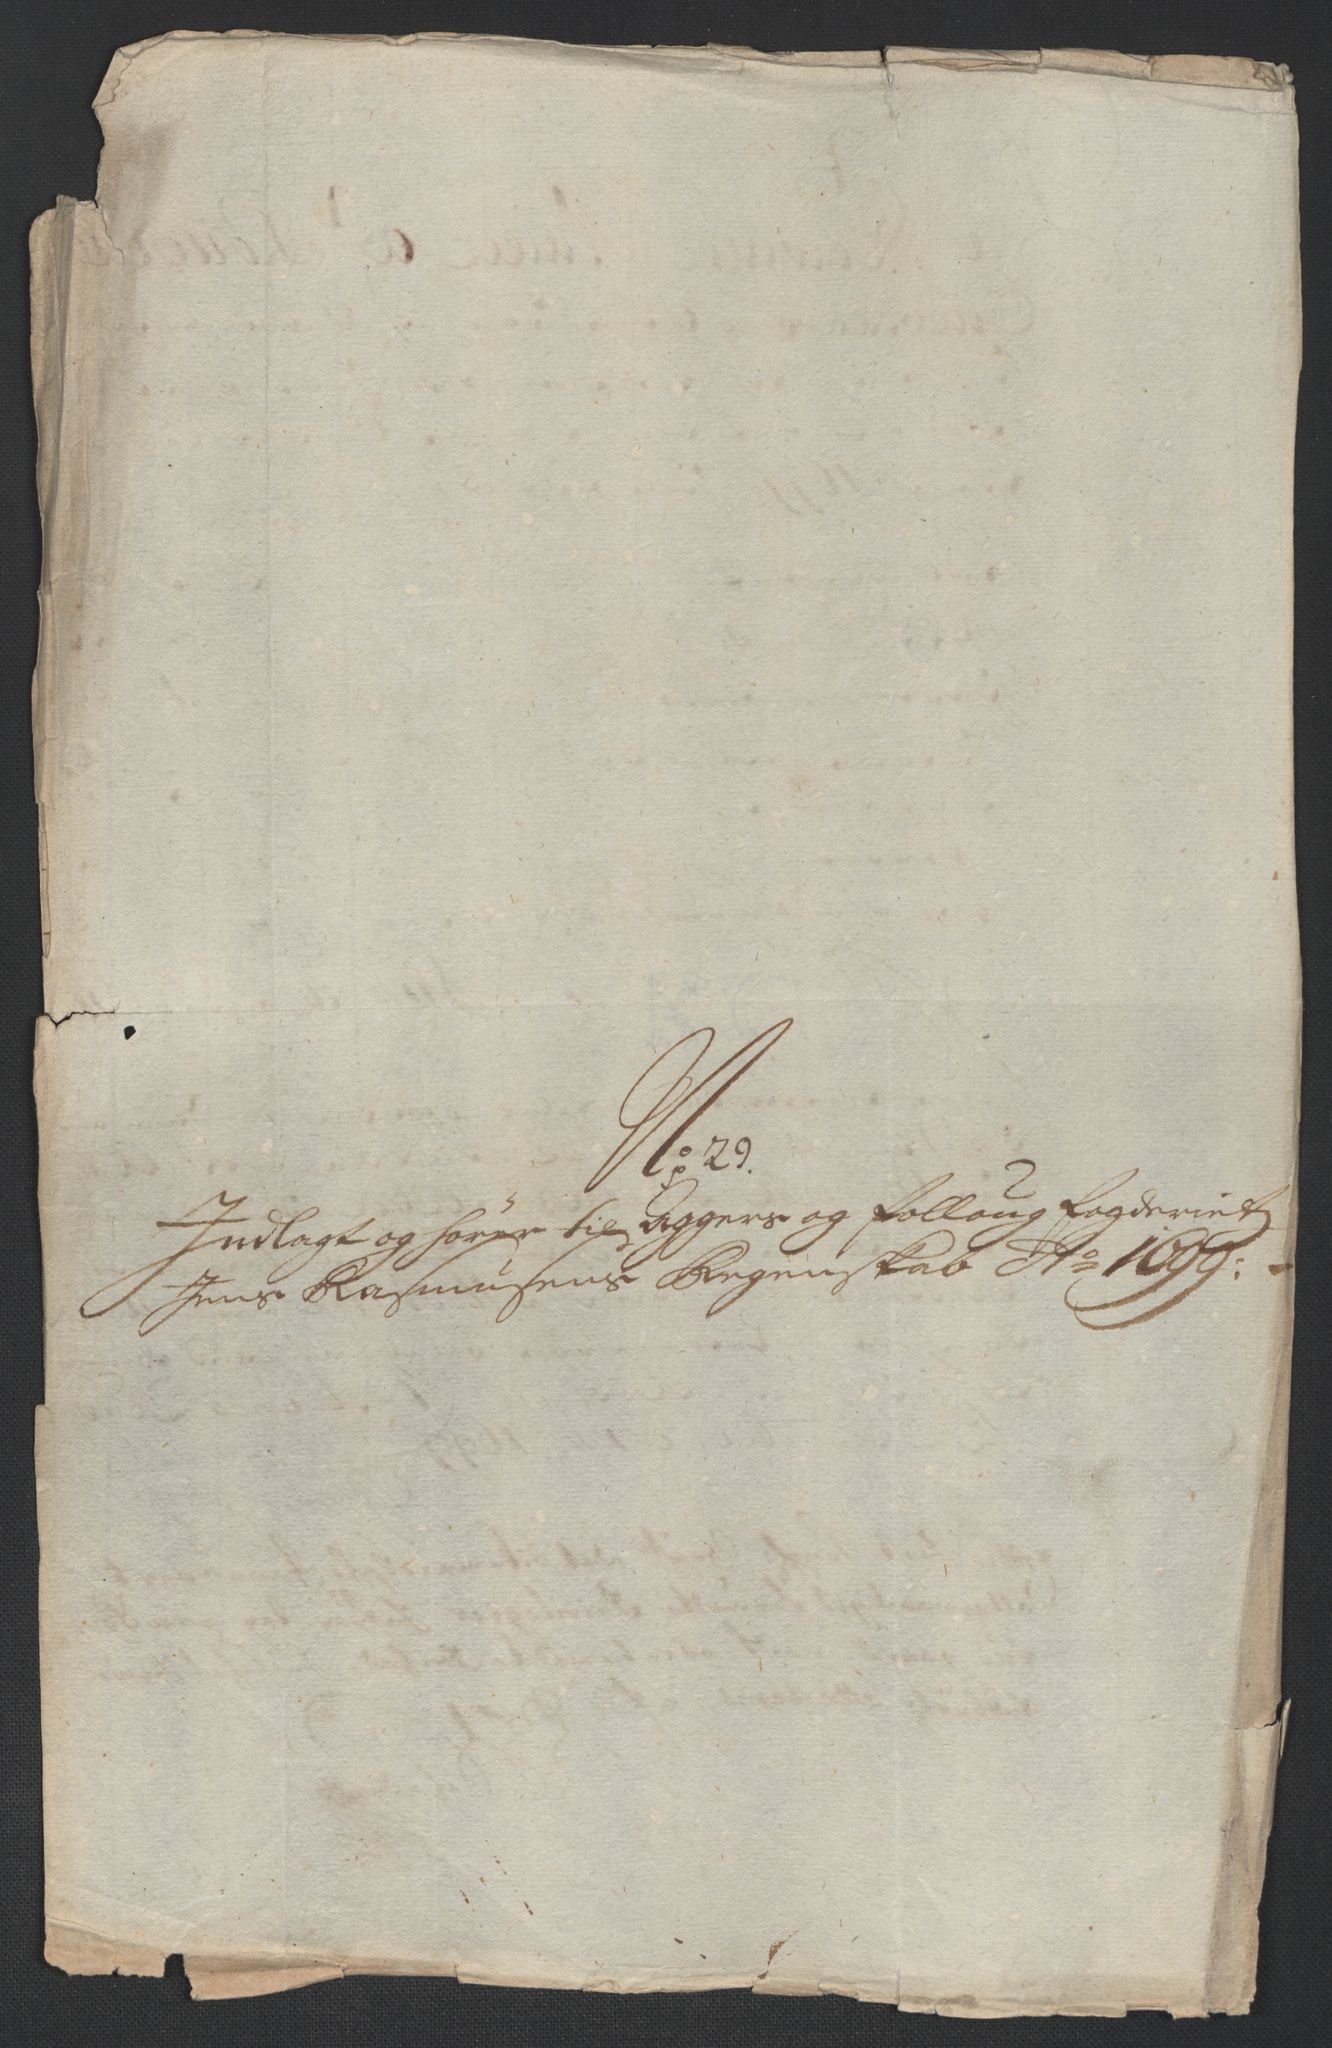 No: 29.
Indlagt og hörer til Aggers og Folloug fogderiet
Jens Rasmusens Regenskab Ao 1699: